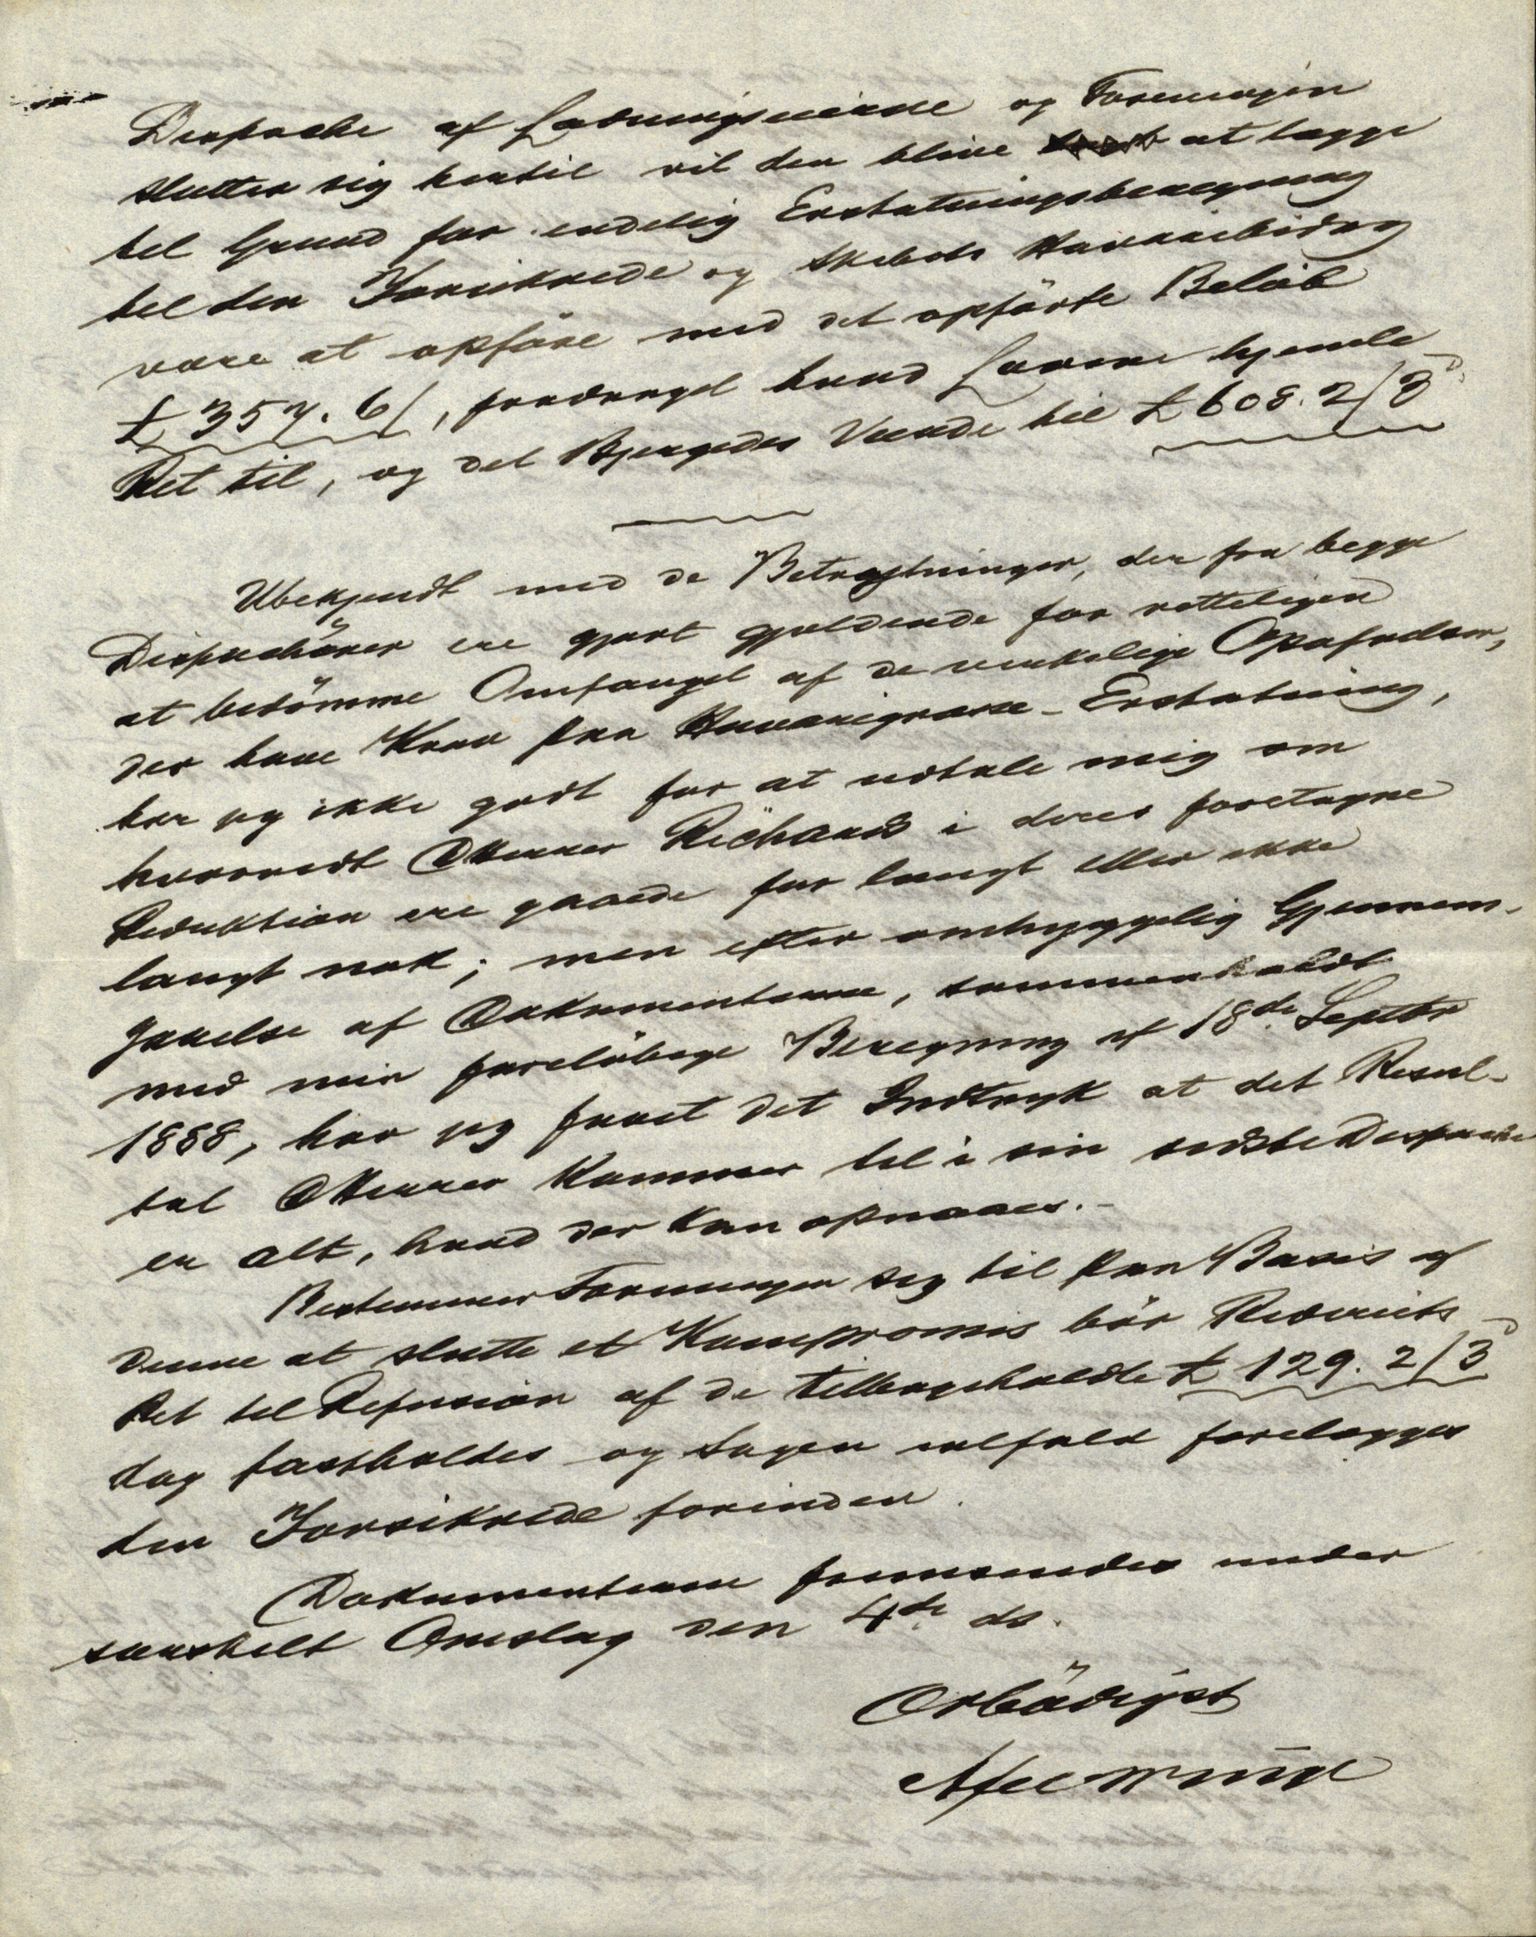 Dispache af Ladningseierne og Foreningen
slutter sig hertil vil den blive at lægge
til Grund for endelig Erstatningsberegning
til den Forsikrede og Skibets Havaribidrag
være at opføre med det opførte Beløb
£ 357. 6/, fradraget hvad Lovene hjemle
Ret til, og det Bjergedes Værdi til £ 608. 2/3d
Ubekjendt med de Betragtninger, der fra begge
Dispachører ere gjort gjeldende for retteligen
at bedömme Omfanget af de virkelige Opofrelser,
der have Krav paa Havarigrosse-Erstatning,
har jeg ikke godt for at udtale mig om
hvorvidt Richards i deres foretagne
Reduktion ere gaaede for langt eller ikke
langt nok; men efter omhyggelig Gjennem-
gaaelse af Dokumenterne, sammenholdt
med min foreløbige Beregning af 18de Septbr
1888, har jeg faaet det Indtryk at det Resul-
tat kommer til i sin sidste Dispache
er alt, hvad der kan opnaaes.-
Bestemmer Foreningen sig til paa Basis af
denne at slutte et Kompromis bör Rederiets
Ret til Refusion af de tilbageholdte £ 129. 2/3d
dog fastholdes og Sagen ialfald forelægges
den Forsikrede forinden.
Dokumenterne fremsendes under
særskilt Omslag den 4de ds.
Ærbödigst